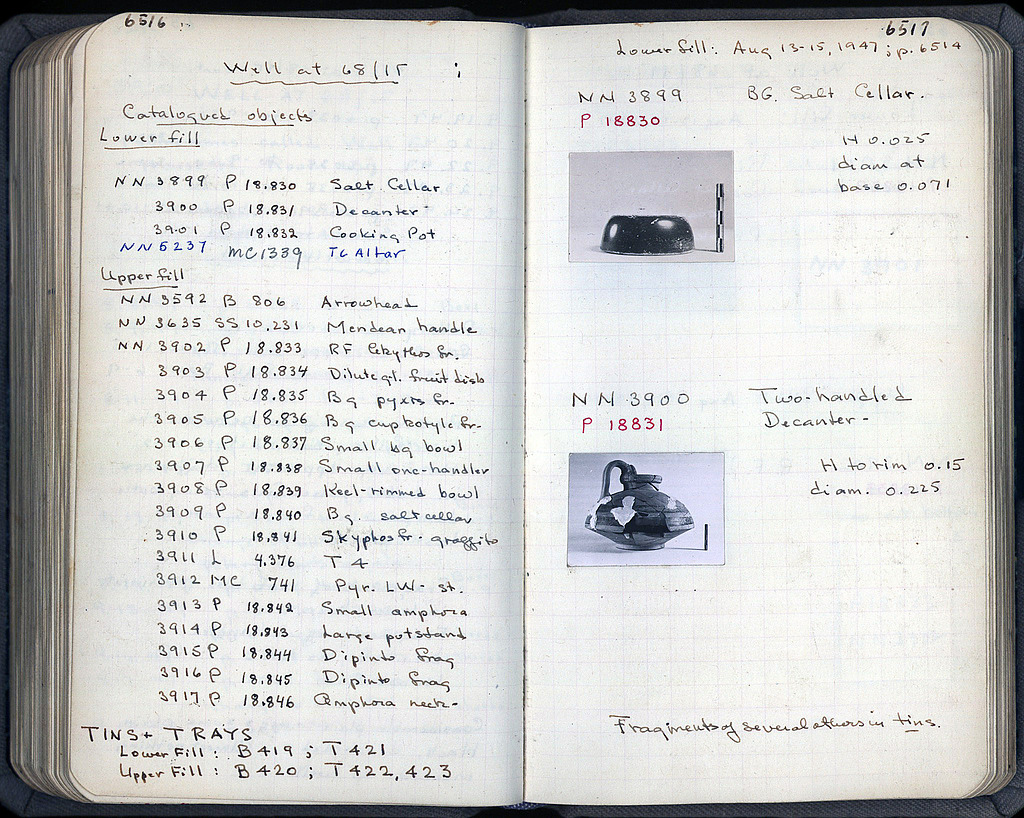 6516
Well at 68/15 ;
Catalogued objects
Lower fill
NN 3899 P 18.830 Salt Cellar
3900 P 18.831 Decanter
3901 P 18.832 Cooking Pot
NN5237 MC1339 TC Altar
Upper fill
NN 3592 B 806 Arrowhead
NN 3635 SS 10.231 Mendean handle
NN 3902 P 18.833 RF lekythos fr.
3903 P 18.834 Dilute gl. fruit dish
3904 P 18.835 Bg pyxis fr.
3905 P 18.836 Bg cup kotyle fr.
3906 P 18.837 Small bg bowl
3907 P 18.838 Small one-handler
3908 P 18.839 Keel-rimmed bowl
3909 P 18.840 Bg. salt cellar
3910 P 18.841 Skyphos fr. graffito
3911 L 4.376 T 4
3912 MC 741 Pyr. LW. st.
3913 P 18.842 Small amphora
3914 P 18.843 Large potstand
3915 P 18.844 Dipinto frag
3916 P 18.845 Dipinto frag
3917 P 18.846 Amphora neck-
TINS + TRAYS
Lower Fill : B 419 ; T 421
Upper Fill : B 420 ; T 422, 423
6517
Lower fill: Aug 13-15, 1947 ; p. 6514
NN 3899 BG. Salt Cellar.
P 18830
H 0.025
diam at
base 0.071
NN 3900 Two-handled
P 18831 Decanter-
H to rim 0.15
diam. 0.225
Fragments of several others in tins.